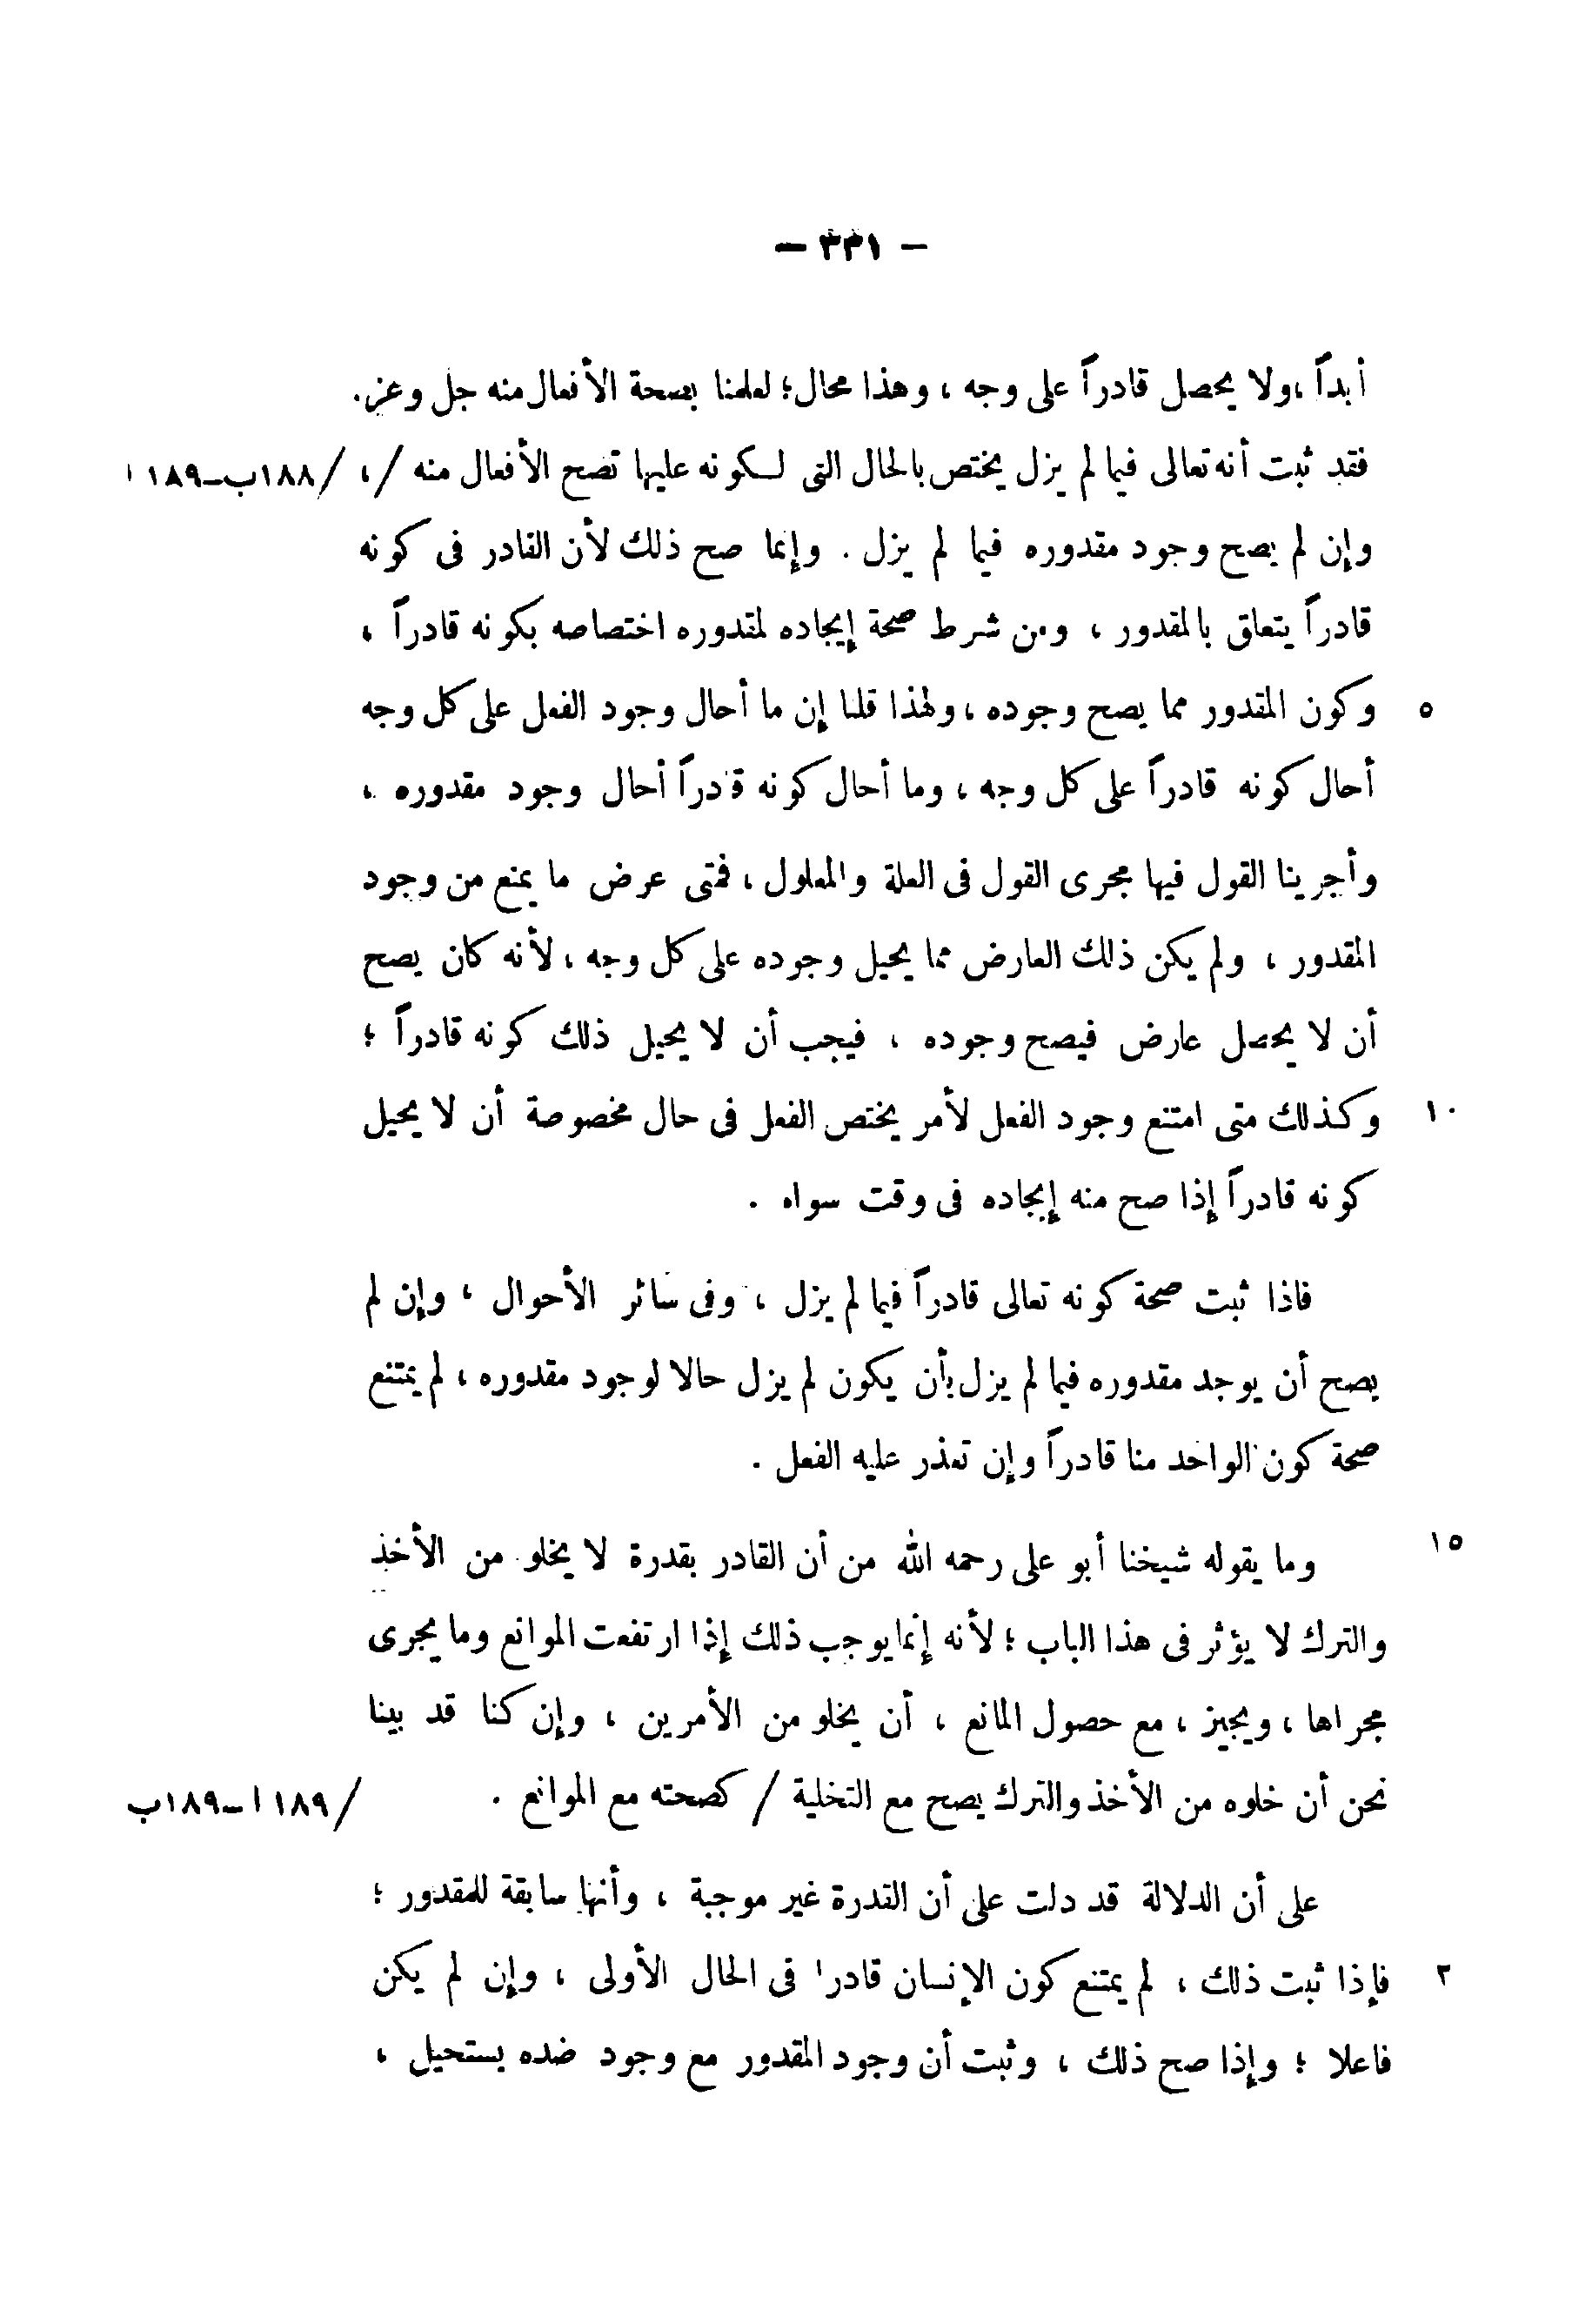 — ٣٣١ —
أبداً ، ولا يحصل قادراً على وجه ، وهذا محال ؛ لعلمنا بصحة الأفعال منه جل وعز .
فقد ثبت أنه تعالى فيما لم يزل يختص بالحال التى لكونه عليها تصح الأفعال منه / ، /١٨٨ب–١٨٩ا
وإن لم يصح وجود مقدوره فيما لم يزل . وإنما صح ذلك لأن القادر فى كونه
قادراً يتعلق بالمقدور ، ومن شرط صحة إيجاده لمقدوره اختصاصه بكونه قادراً ،
٥ وكون المقدور مما يصح وجوده ، ولهذا قلنا إن ما أحال وجود الفعل على كل وجه
أحال كونه قادراً على كل وجه ، وما أحال كونه قادراً أحال وجود مقدوره ،
وأجرينا القول فيها مجرى القول فى العلة والمعلول ، فمتى عرض ما يمنع من وجود
المقدور ، ولم يكن ذلك العارض مما يحيل وجوده على كل وجه ، لأنه كان يصح
أن لا يحصل عارض فيصح وجوده ، فيجب أن لا يحيل ذلك كونه قادراً ؛
١٠ وكذلك متى امتنع وجود الفعل لأمر يختص الفعل فى حال مخصوصة أن لا يحيل
كونه قادراً إذا صح منه إيجاده فى وقت سواه .
فاذا ثبت صحة كونه تعالى قادراً فيما لم يزل ، وفى سائر الأحوال ، وإن لم
يصح أن يوجد مقدوره فيما لم يزل بأن يكون لم يزل حالا لوجود مقدوره ، لم يمتنع
صحة كون الواحد منا قادراً وإن تعذر عليه الفعل .
١٥ وما يقوله شيخنا أبو على رحمه الله من أن القادر بقدرة لا يخلو من الأخذ
والترك لا يؤثر فى هذا الباب ؛ لأنه إنما يوجب ذلك إذا ارتفعت الموانع وما يجرى
مجراها ، ويجيز ، مع حصول المانع ، أن يخلو من الأمرين ، وإن كنا قد بينا
نحن أن خلوه من الأخذ والترك يصح مع التخلية / كصحته مع الموانع . /١٨٩ا–١٨٩ب
على أن الدلالة قد دلت على أن القدرة غير موجبة ، وأنها سابقة للمقدور ؛
٢ فإذا ثبت ذلك ، لم يمتنع كون الإنسان قادرا فى الحال الأولى ، وإن لم يكن
فاعلا ؛ وإذا صح ذلك ، وثبت أن وجود المقدور مع وجود ضده يستحيل ،